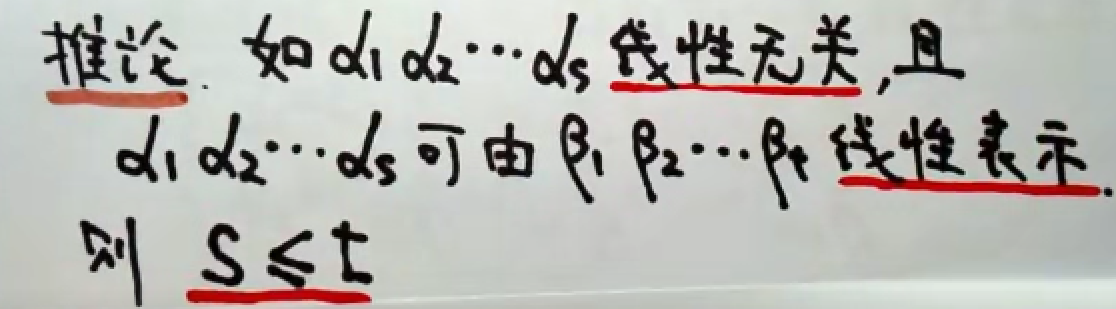 推论. 如 α₁ α₂ ⋯ αₛ 线性无关, 且
α₁ α₂ ⋯ αₛ 可由 β₁ β₂ ⋯ βₜ 线性表示.
则 s ≤ t